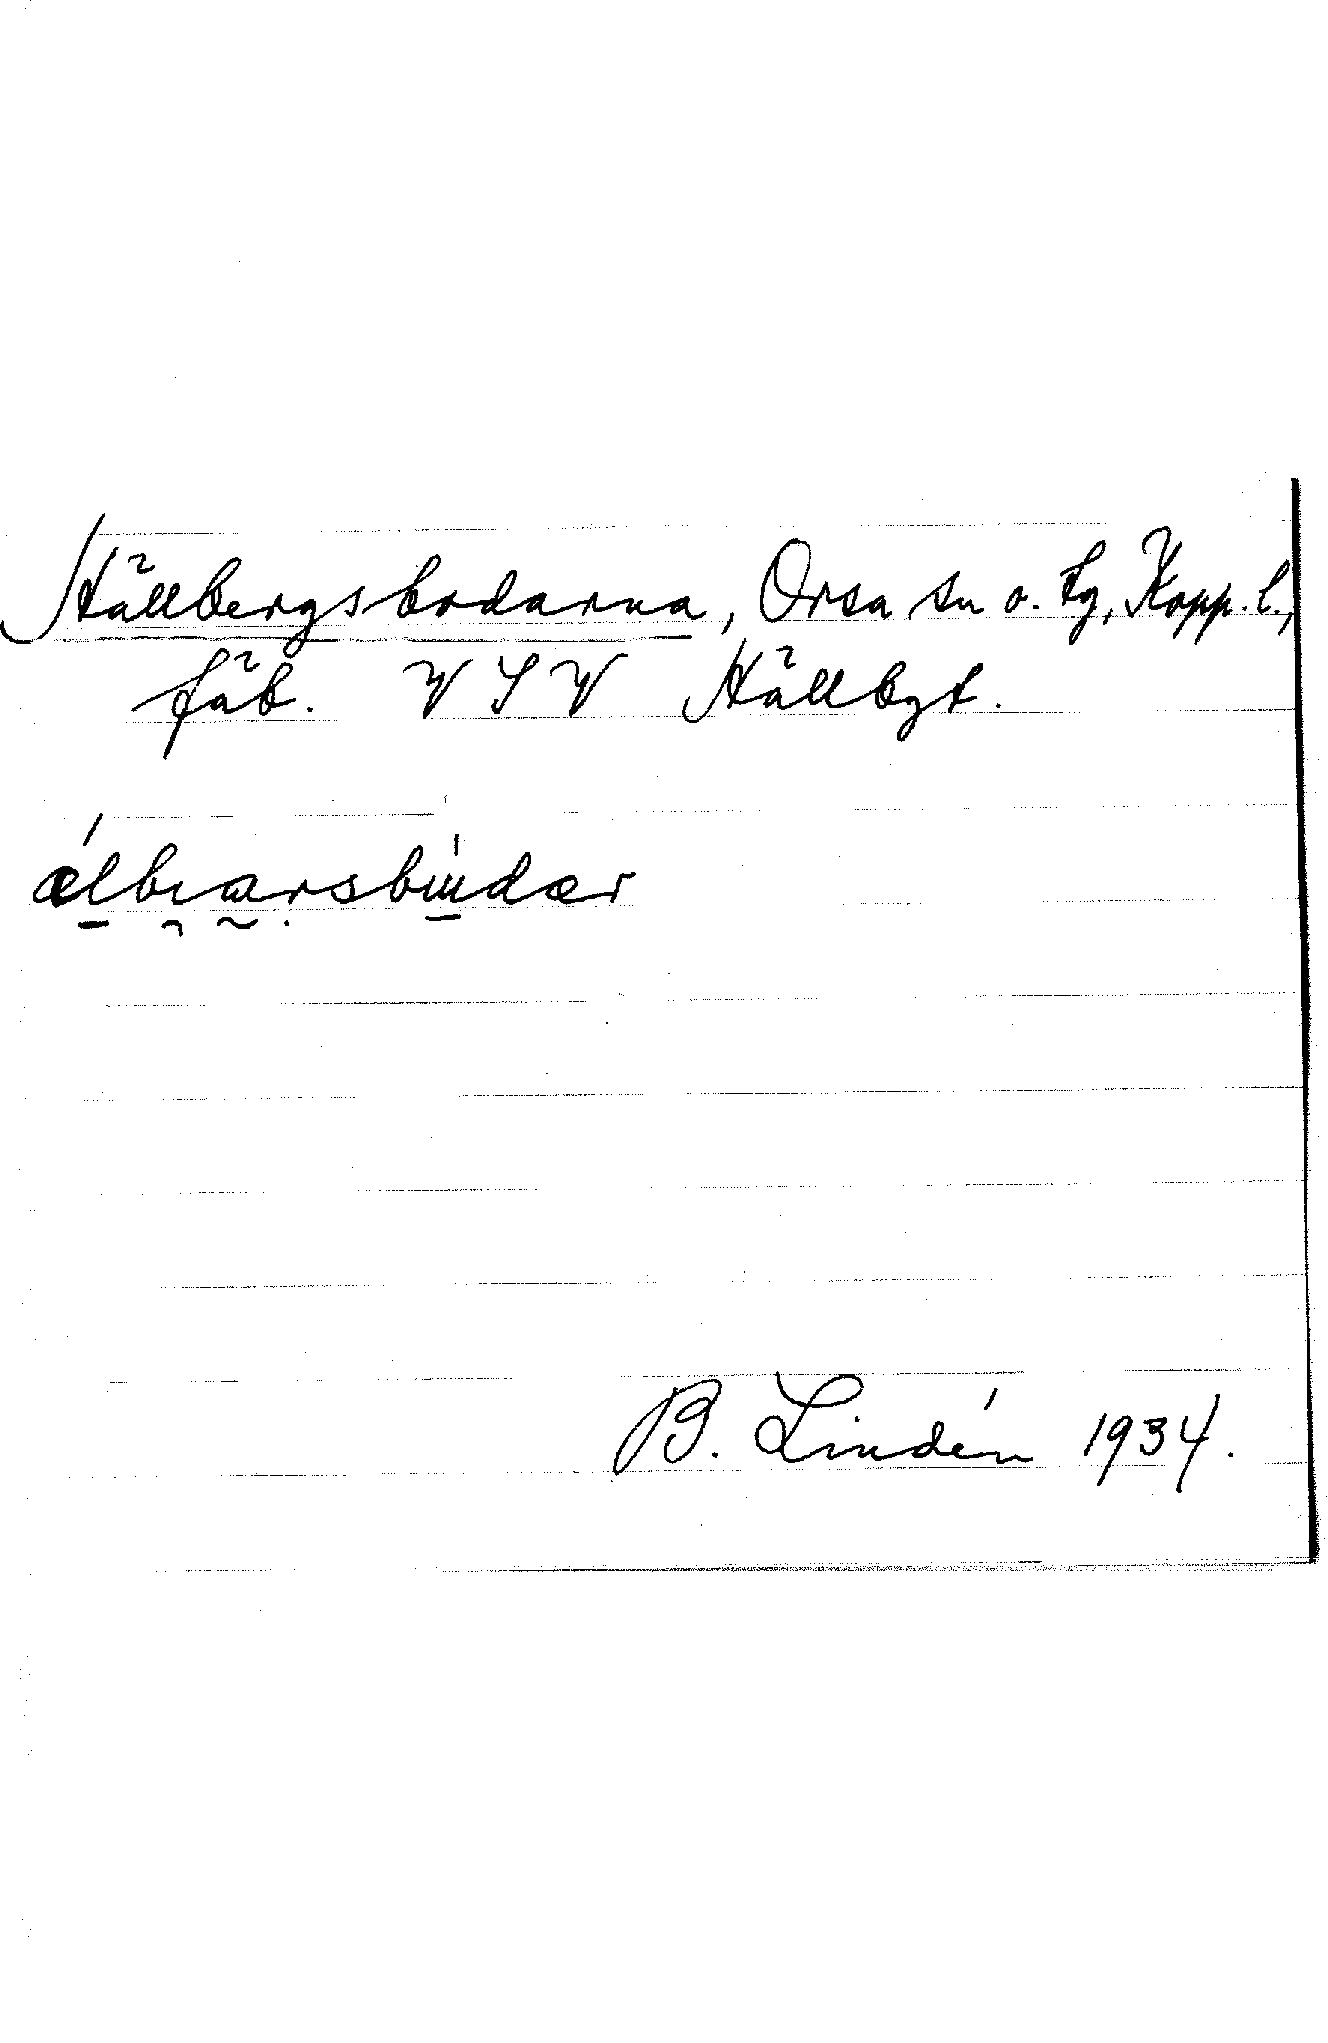 Hällbergsbodarna, Orsa sn o. tg, Kopp. l.,
fäb. VSV Hällbgt.
B. Lindén 1934.